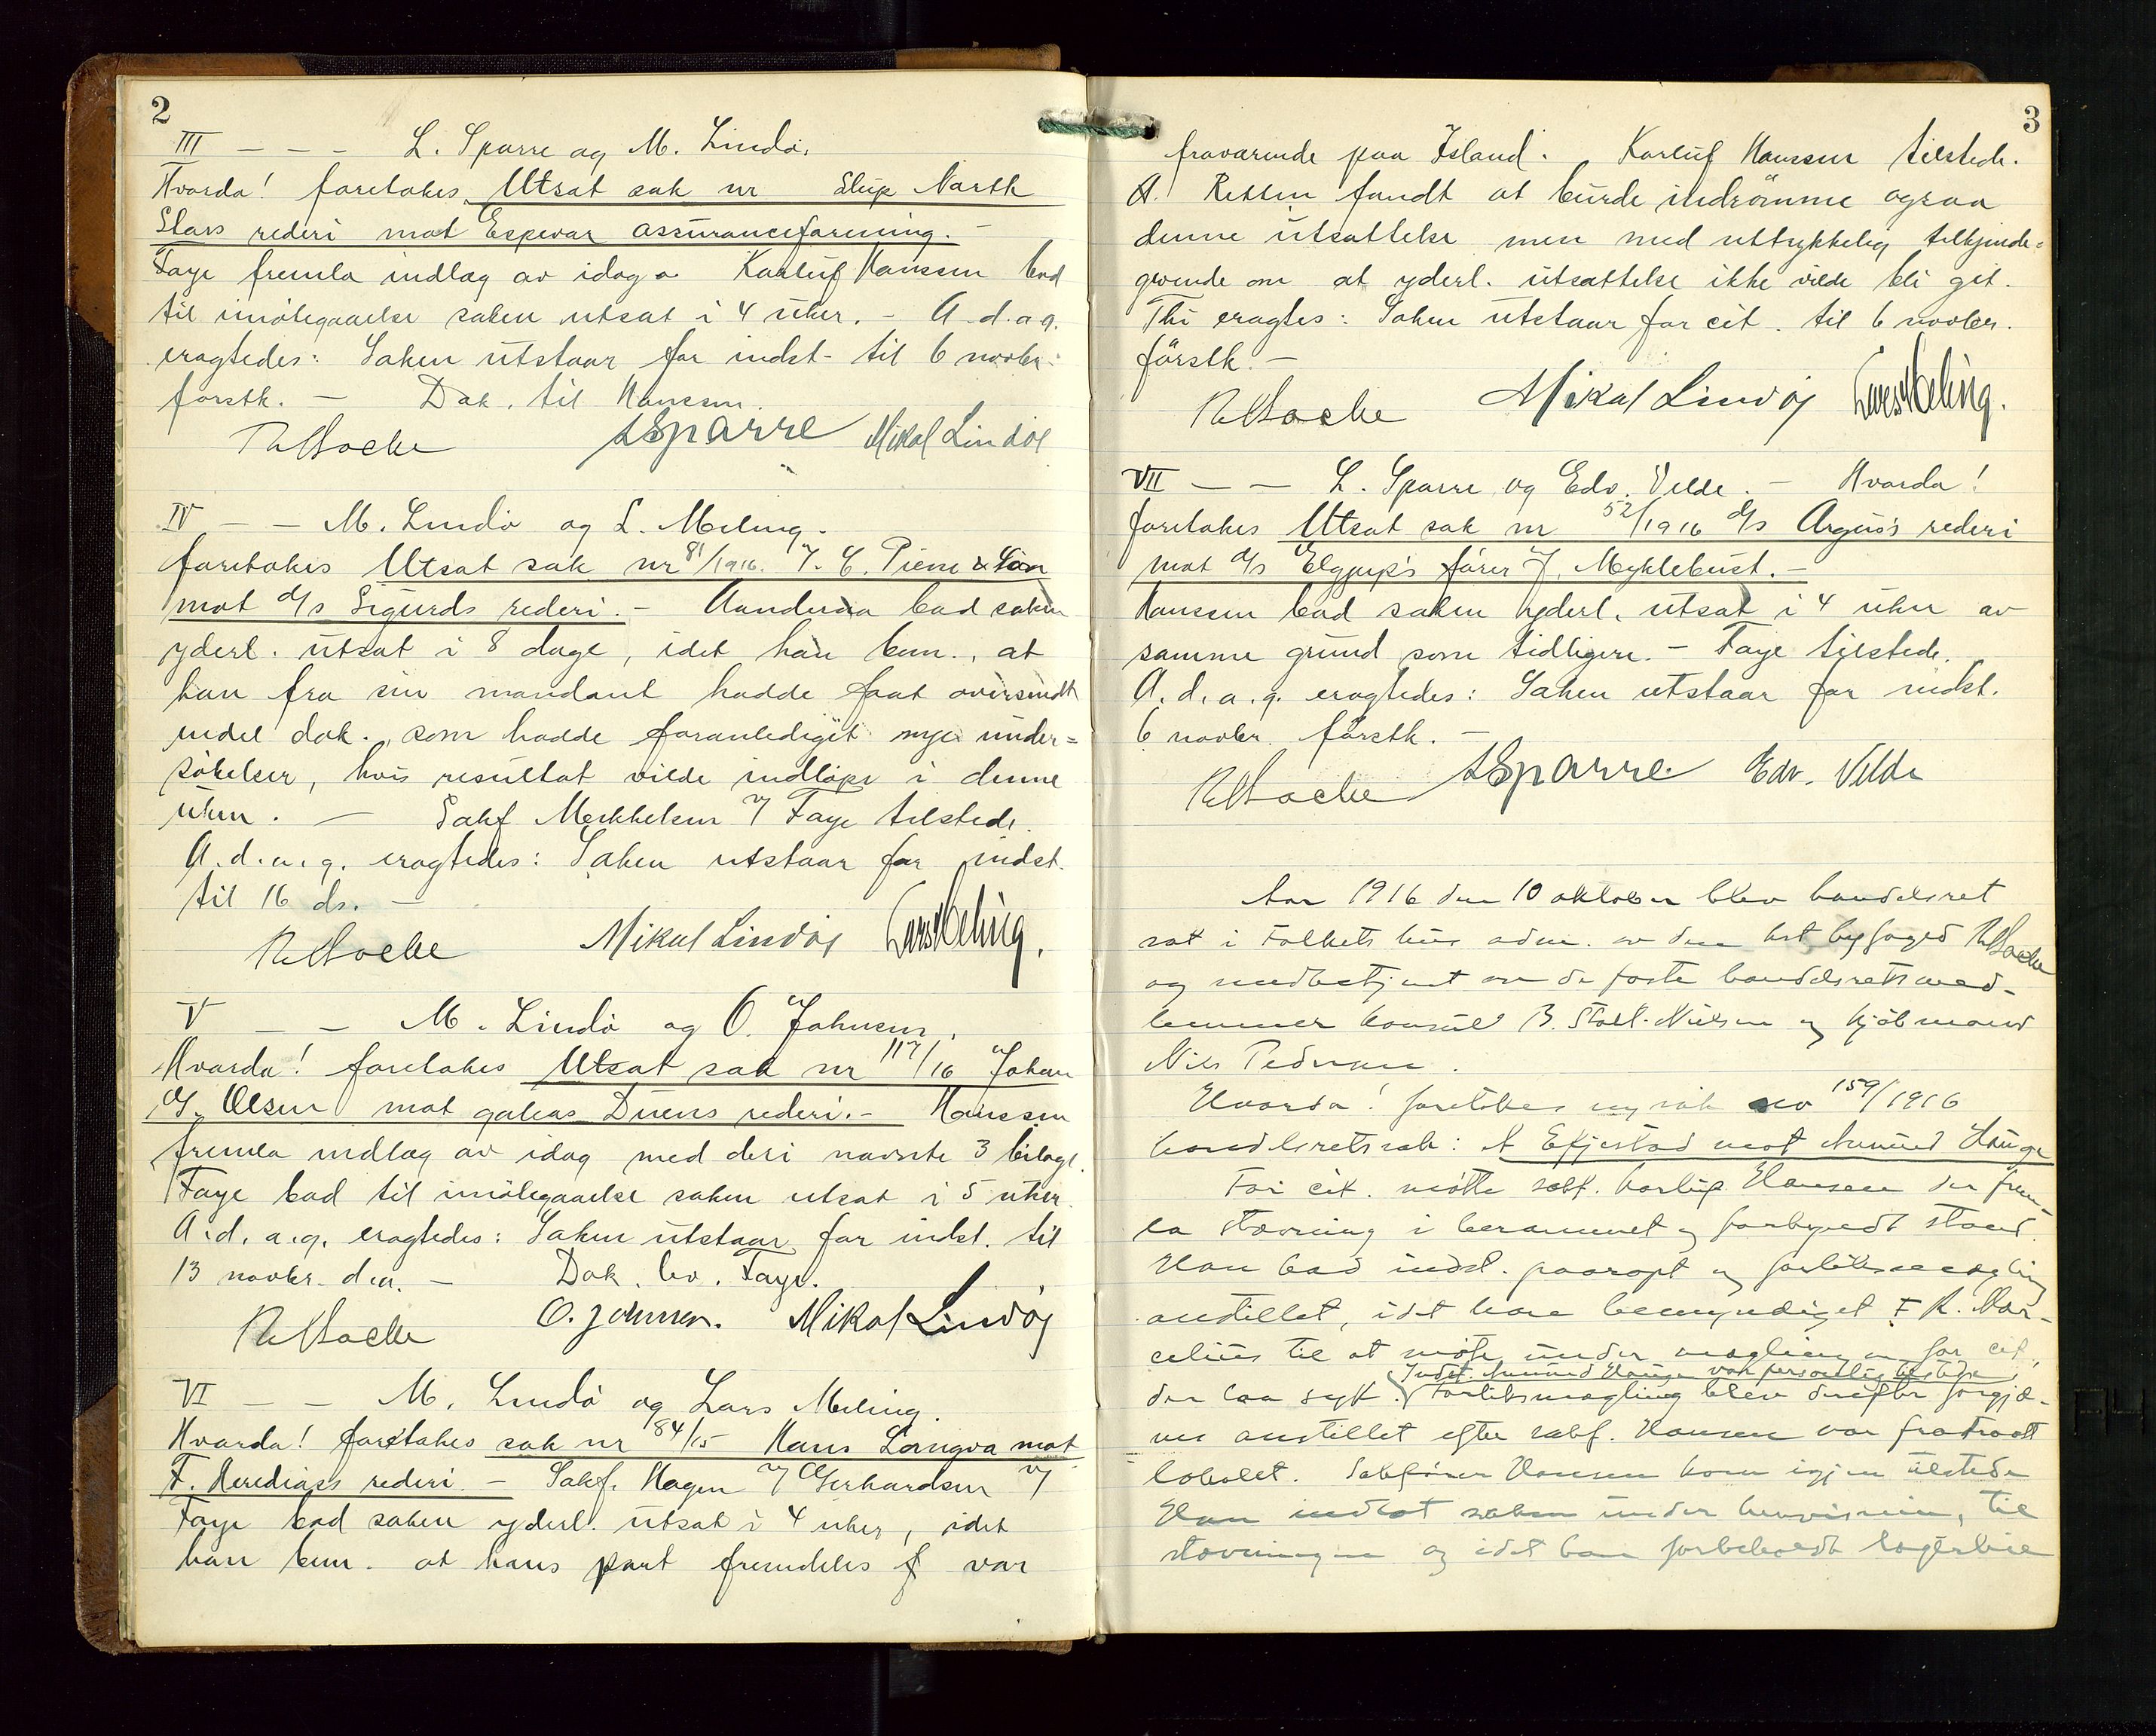 2
III - - - L. Sparre og M. Lindö.
Hvorda! foretokes Utsat sak nr Slup North
Stars rederi mot Espevær assuranceforening. -
Faye fremla indlæg av idag Karluf Hanssen bad
til imötegaaelse saken utsat i 4 uker. - A.d.a.g.
eragtedes: Saken utstaar for indst- til 6 novbr.
förstk. - Dok. til Hanssen.
LSparre Mikal Lindöi
IV - - M. Lindö og L. Meling.
foretokes Utsat sak nr 81/1916. J. C. Piene & Sön
mot d/s Sigurds rederi. - Aanderaa bad saken
yderl. utsat i 8 dage, idet han bem., at
han fra sin mandant hadde faat oversendt
endel dok., som hadde foranlediget nye under=
sökelser, hvis resultat vilde indlöpe i denne
uken. - Sakf Meckkelsen v/ Faye tilstede.
A.d.a.g. eragtedes: Saken utstaar for indst.
til 16 ds. -
Mikal Lindöi Lars Meling.
V - - M. Lindö og O. Johnsen.
Hvorda! foretokes Utsat sak nr 117/16 Johan
G. Olsen mot galeas Duens rederi. - Hanssen
fremla indlæg av idag med deri nævnte 3 bilage.
Faye bad til imötegaaelse saken utsat i 5 uker.
A.d.a.g. eragtedes: Saken utstaar for indst. til
13 novbr. d.a. - Dok. lev. Faye.
O. Johnsen. Mikal Lindöi
VI - - M. Lindö og Lars Meling.
Hvorda! foretokes sak nr 84/15 Hans Langva mot
F. Herediass rederi. - Sakf. Hagen v/ Gerhardsen v/
Faye bad saken yderl. utsat i 4 uker, idet
han bem. at hans part fremdeles var
3
fraværende paa Island. Karluf Hanssen tilstede.
A. Retten fandt at burde indrömme ogsaa
denne utsættelse men med uttrykkelig tilkjende=
givende om at yderl. utsættelse ikke vilde bli git.
Thi eragtes: Saken utstaar for cit. til 6 novbr.
förstk. -
Mikal Lindöi Lars Meling.
VII - - L. Sparre og Edv. Velde. - Hvorda!
foretokes Utsat sak nr 52/1916 d/s Argus's rederi
mot d/s Elgjup's förer J. Myklebust. -
Hanssen bad saken yderl. utsat i 4 uker av
samme grund som tidligere. - Faye tilstede.
A.d.a.g. eragtedes: Saken utstaar for indst.
6 novbr. förstk. -
LSparre Edv. Velde
Aar 1916 den 10 oktober blev handelsret
sat i Folkets hus adm. av den kst byfoged
og medbetjent av de faste handelsretsmed-
lemmer konsul B. Stolt-Nielsen og kjöbmand
Nils Pedersen.
Hvorda! foretokes ny sak no 159/1916
handelsretssak: A Efjestad mot Amund Hauge
For cit. mötte sakf. Karluf Hansen der frem-
la stævning i berammet og forkyndt stand.
Han bad indst. paaropt og forliksmægling
anstillet, idet han bemyndiget F R. Mar-
celius til at möte under mæglingen for cit.
Indst. Amund Hauge var personlig tilstede
der laa syk. Forliksmægling blev derefter forgjæ-
ves anstillet efter sakf. Hansen var fratraadt
lokalet. Sakförer Hansen kom igjen tilstede
Han indlot saken under henvisning til
stævningen og idet han forbeholdt